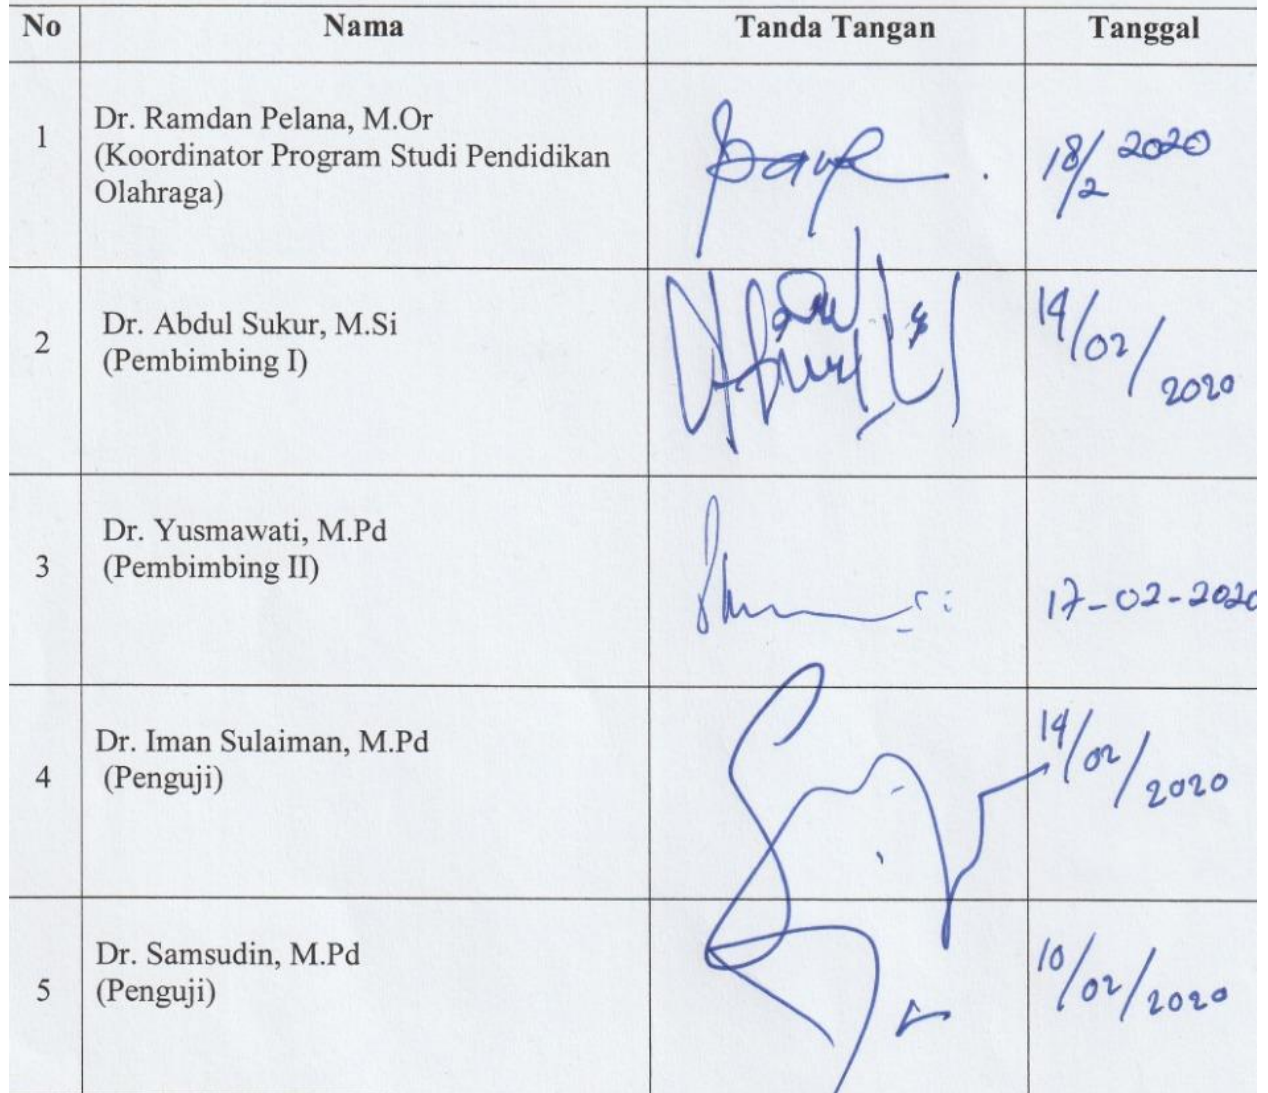 No Nama Tanda Tangan Tanggal
1 Dr. Ramdan Pelana, M.Or
(Koordinator Program Studi Pendidikan
Olahraga)
18/2 2020
2 Dr. Abdul Sukur, M.Si
(Pembimbing I)
14/02/2020
3 Dr. Yusmawati, M.Pd
(Pembimbing II)
17-02-2020
4 Dr. Iman Sulaiman, M.Pd
(Penguji)
14/02/2020
5 Dr. Samsudin, M.Pd
(Penguji)
10/02/2020